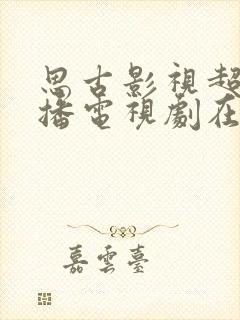 思古影視超
播電視劇在
嘉雲臺